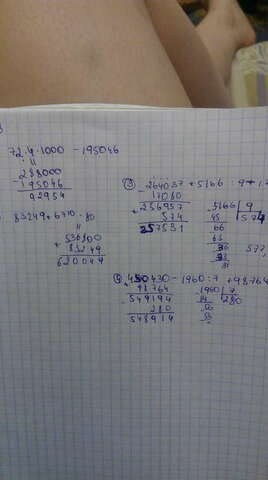 72.4.1000 - 195046
288000
195046
92954
83249+6710.80
536800
83249
620049
③ 264037+5166:9+17
17080
256957
574
257531
5166 | 9
45 574
66
63
36
36
④ 450430-1960:7+98764
98764
549194
280
548914
1960 | 7
14 280
56
56